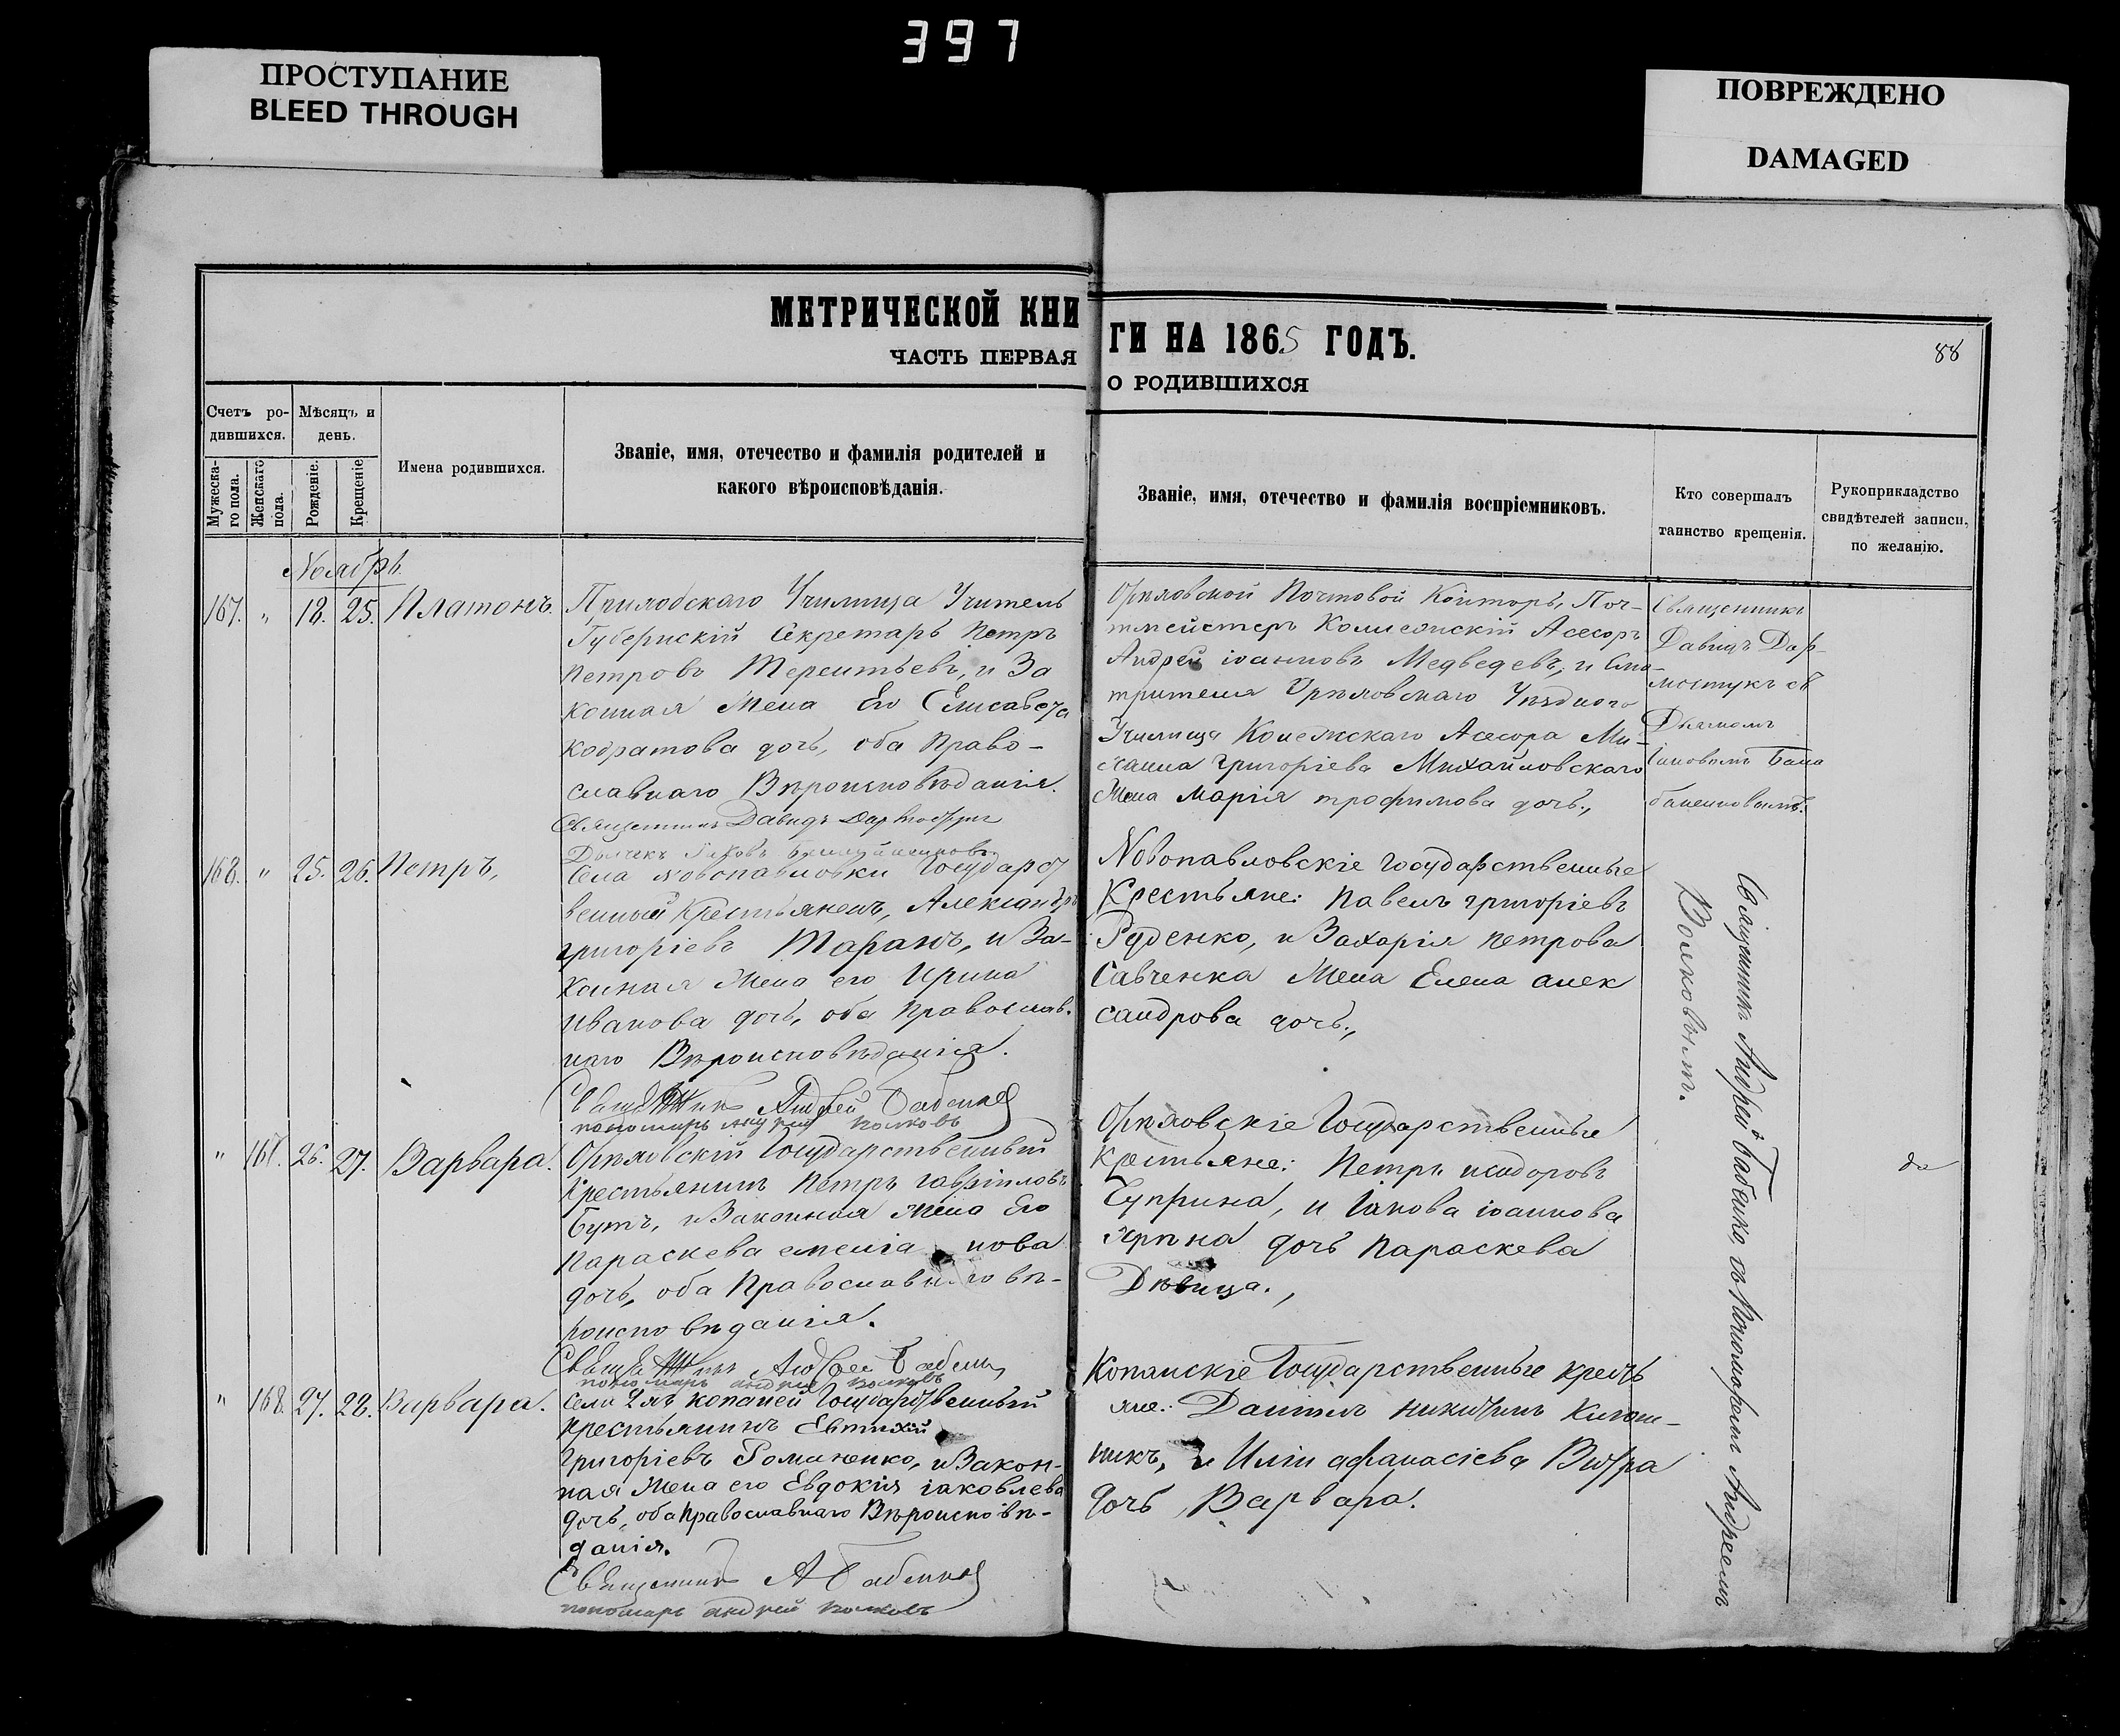 397
ПРОСТУПАНИЕ
BLEED THROUGH
ПОВРЕЖДЕНО
DAMAGED
МЕТРИЧЕСКОЙ КНИ
ГИ НА 1865 ГОДЪ.
88
ЧАСТЬ ПЕРВАЯ
О РОДИВШИХСЯ
Счетъ ро-
дившихся.
Мѣсяцъ и
день.
Мужеска-
го пола.
Женскаго
пола.
Рожденіе.
Крещеніе
Имена родившихся.
Званіе, имя, отечество и фамилія родителей и
какого вѣроисповѣданія.
Званіе, имя, отечество и фамилія воспріемниковъ.
Кто совершалъ
таинство крещенія.
Рукоприкладство
свидѣтелей записи,
по желанію.
Ноябрь.
167. " 18. 25. Платонъ.
Училища Учитель
Губернскій Секретарь Петръ
Петровъ Терентьевъ, и За
конная Жена Его Елисавета
кодратова дочь, оба Право-
славнаго Вѣроисповѣданія.
Священникъ Давидъ
Орѣховской Почтовой Конторы, Поч-
тмейстеръ Колежскій Асесоръ
Андрей іоанновъ Медведевъ, и Смо-
трителя Орѣховскаго Уѣзднаго
Училища Колежскаго Асесора Ми-
хаила григоріева Михайловскаго
Жена Марія трофимова дочь.,
Священникъ
Давидъ Дар-
мостукъ съ
Дьячкомъ
168. " 25. 26. Петръ,
Села Новопавловки Государст
венный Крестьянинъ, Александръ
григоріевъ Таранъ, и За-
конная Жена его Ирина
Иванова дочь, оба Православ.
наго Вѣроисповѣданія.
Священникъ Андрей Бабенко
пономарь Андрей Волковъ
Новопавловскіе Государственные
Крестьяне: Павелъ григоріевъ
Руденко, и Захарія петрова
Савченка Жена Елена алек
сандрова дочь.,
Священникъ Андрей Бабенко съ Пономаремъ Андреемъ
Волковымъ.
" 167. 26. 27. Варвара.
Орѣховскій Государственный
Крестьянинъ Петръ гавріиловъ
Бутъ, и Законная Жена Его
Параскева емелiа нова
дочь, оба Православнаго вѣ-
роисповѣданія.
Священникъ Андрей Бабенко
пономарь андрей волковъ
Орѣховскіе Государственные
Крестьяне: Петръ исидоровъ
Чуприна, и Іакова іоаннова
дочь параскева
Дѣвица.,
" 168. 27. 28. Варвара.
Копаней Государственный
крестьянинъ Евтихій
григоріевъ Романенко, и Закон-
ная Жена его Евдокія іаковлева
дочь, оба Православнаго Вѣроисповѣ-
данія.
Священникъ А Бабенко
пономарь андрей волковъ
Копанскіе Государственные кресть
яне: Даніилъ никитинъ
никъ, и Иліи афанасіева
дочь Варвара.